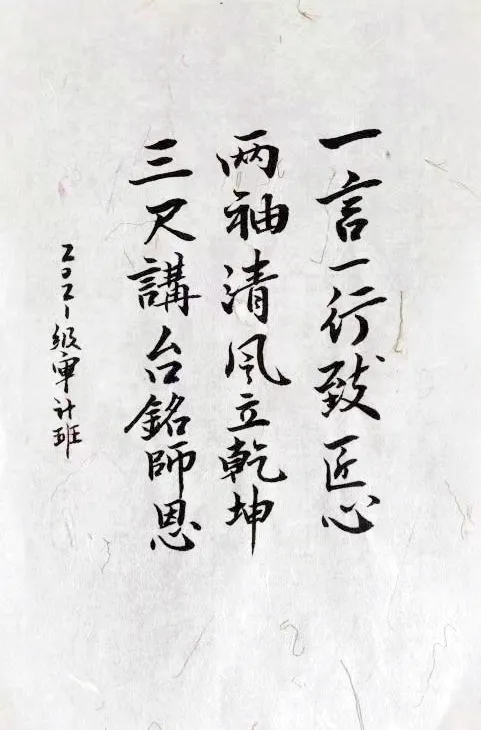 一言一行致匠心
两袖清風立乾坤
三尺講台銘師恩
2021级审计班